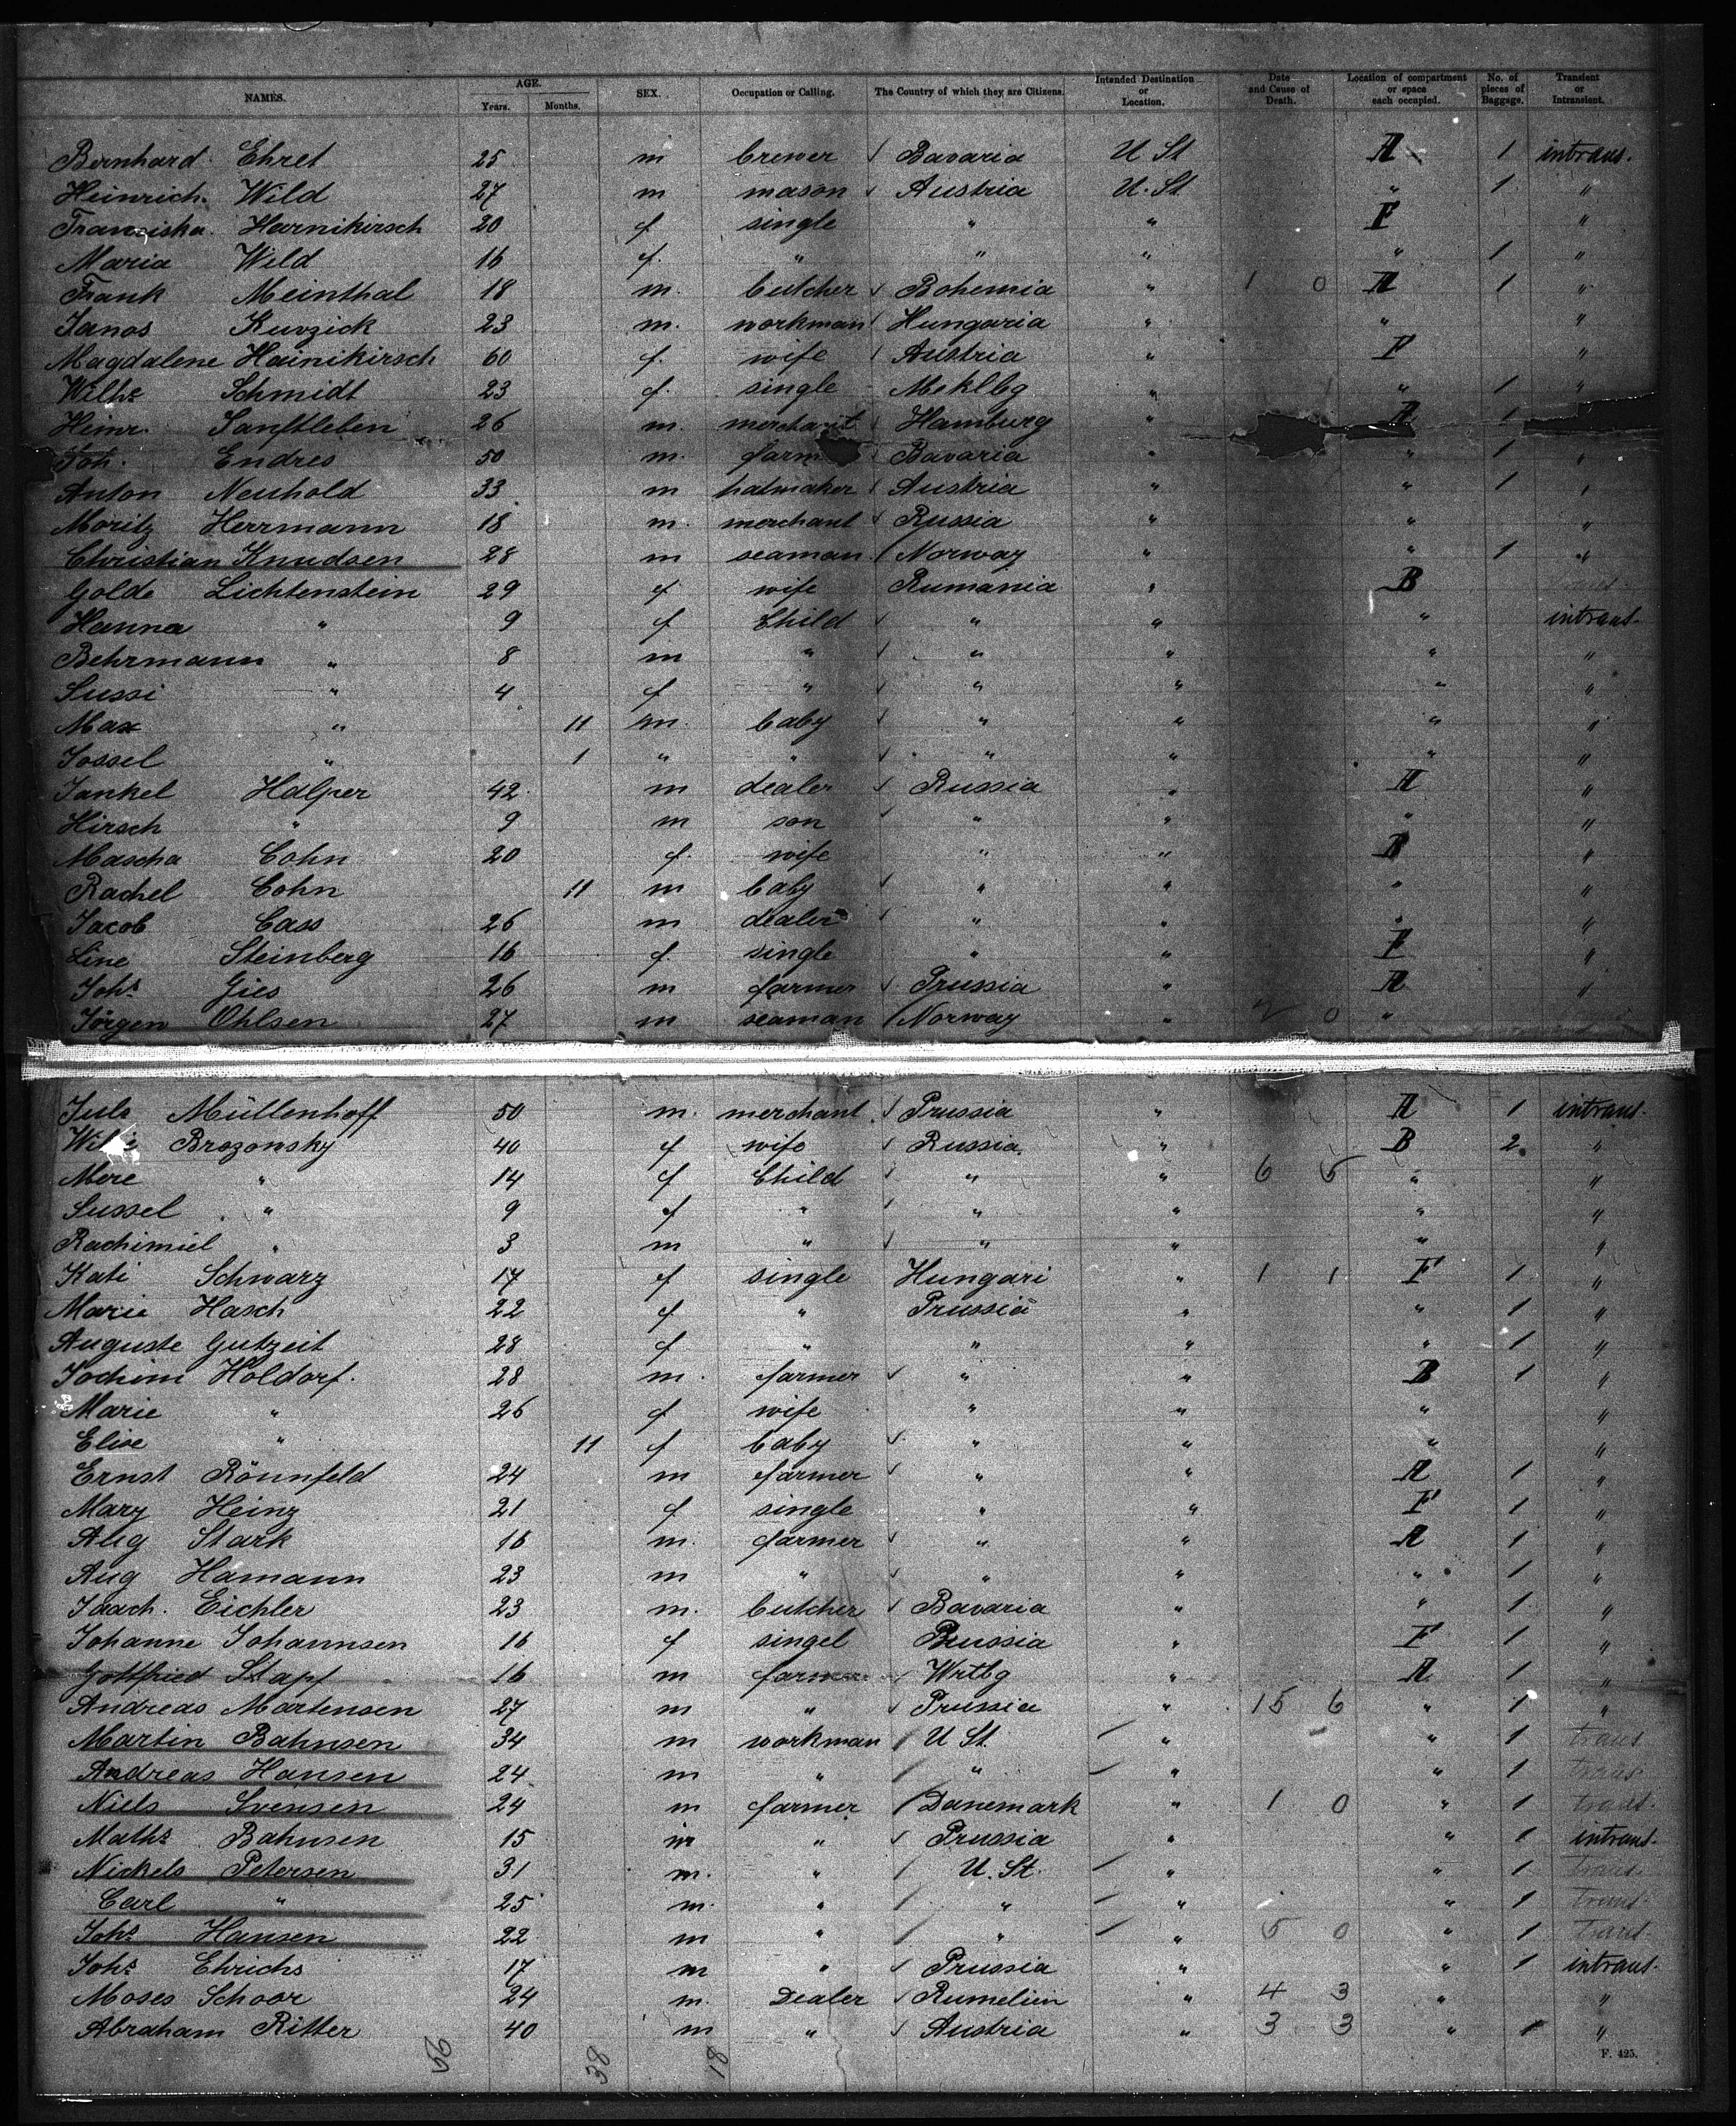 NAMES. AGE. Years. Months. SEX. Occupation or Calling. The Country of which they are Citizens. Intended Destination or Location. Date and Cause of Death. Location of compartment or space each occupied. No. of pieces of Baggage. Transient or Intransient.
Bernhard Ehret 25 m brewer √ Bavaria U St A 1 intrans.
Heinrich Wild 27 m mason √ Austria U. St " 1 "
Franziska Harnikirsch 20 f single " " F "
Maria Wild 16 f. " " " " 1 "
Frank Meinthal 18 m. butcher √ Bohemia " 1 0 A 1 "
Janos Kuvzick 23 m. workman √ Hungaria " " "
Magdalene Hainikirsch 60 f. wife Austria " F "
Wilhe Schmidt 23 f. single Meklbg " " 1 "
Heinr. Sanftleben 26 m. merchant Hamburg " A 1
Joh. Endres 50 m. farm Bavaria " " 1 "
Anton Neuhold 33 m hatmaker Austria " " 1 "
Moritz Herrmann 18 m. merchant √ Russia " " "
Christian Knudsen 28 m seaman / Norway " " 1 "
Golde Lichtenstein 29 f wife Rumania " B trans.
Hanna " 9 f Child √ " " " intrans.
Behrmann " 8 m " √ " " " "
Sussi " 4 f " √ " " " "
Max " 11 m. baby √ " " " "
Jossel " 1 " " √ " " " "
Jankel Halper 42 m dealer √ Russia " A "
Hirsch " 9 m son √ " " " "
Mascha Cohn 20 f. wife " " B "
Rachel Cohn 11 m baby √ " " " "
Jacob Cass 26 m dealer √ " " " "
Line Steinberg 16 f. single " " F "
Johs Gies 26 m farmer √ Prussia " A "
Jörgen Ohlsen 27 m seaman / Norway " 2 0 "
Juls Müllenhoff 50 m. merchant √ Prussia " A 1 intrans.
Brozonsky 40 f wife √ Russia " B 2 "
Mere " 14 f Child √ " " 6 5 " "
Sussel " 9 f " √ " " " "
Rachimiel " 3 m " √ " " " "
Kati Schwarz 17 f single Hungari " 1 1 F 1 "
Marie Hasch 22 f " Prussia " " 1 "
Auguste Gutzeit 28 f " " " " 1 "
Jochim Holdorf. 28 m. farmer √ " " B 1 "
Marie " 26 f wife " " " "
Elise " 11 f baby √ " " " "
Ernst Rönnfeld 24 m farmer √ " " A 1 "
Mary Heinz 21 f single " " F 1 "
Aug Stark 16 m. farmer √ " " A 1 "
Aug Hamann 23 m " √ " " " 1 "
Eichler 23 m. butcher √ Bavaria " " 1 "
Johanne Johannsen 16 f singel Prussia " F 1 "
Gottfried Stapf 16 m farmer √ Wrtbg " A 1 "
Andreas Martensen 27 m " √ Prussia " 15 6 " 1 "
Martin Bahnsen 34 m workman / U St / " " 1 trans
Andreas Hansen 24 m " / " / " " 1 trans
Niels Svensen 24 m farmer / Danemark " 1 0 " 1 trans.
Maths Bahnsen 15 m " √ Prussia " " 1 intrans.
Nickels Petersen 31 m. " / U. St. / " " 1 trans.
Carl " 25 m. " / " / " " 1 trans.
Johs Hansen 22 m " / " / " 5 0 " 1 trans.
Johs Ehrichs 17 m " √ Prussia " " 1 intrans.
Moses Schoor 24 m. Dealer √ Rumelien " 4 3 " "
Abraham Ritter 40 m " √ Austria " 3 3 " 1 "
56 38 18
F. 425.